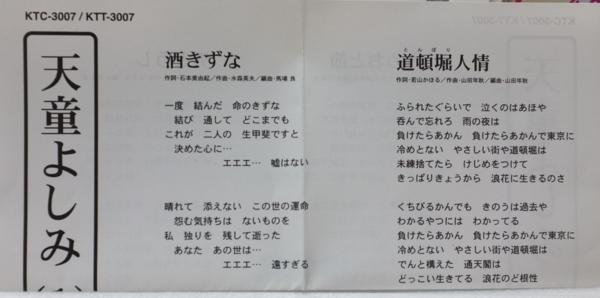 KTC-3007 / KTT-3007
天童よしみ
酒きずな
作詞・石本美由起／作曲・水森英夫／編曲・馬場 良
一度　結んだ　命のきずな
結び　通して　どこまでも
これが　二人の　生甲斐ですと
決めた心に…
エエエ…　嘘はない
晴れて　添えない　この世の運命
怨む気持ちは　ないものを
私　独りを　残して逝った
あなた　あの世は…
エエエ…　遠すぎる
とんぼり
道頓堀人情
作詞・若山かほる／作曲・山田年秋／編曲・山田年秋
ふられたぐらいで　泣くのはあほや
呑んで忘れろ　雨の夜は
負けたらあかん　負けたらあかんで東京に
冷めとない　やさしい街や道頓堀は
未練捨てたら　けじめをつけて
きっぱりきょうから　浪花に生きるのさ
くちびるかんでも　きのうは過去や
わかるやつには　わかってる
負けたらあかん　負けたらあかんで東京に
冷めとない　やさしい街や道頓堀は
でんと構えた　通天閣は
どっこい生きてる　浪花のど根性